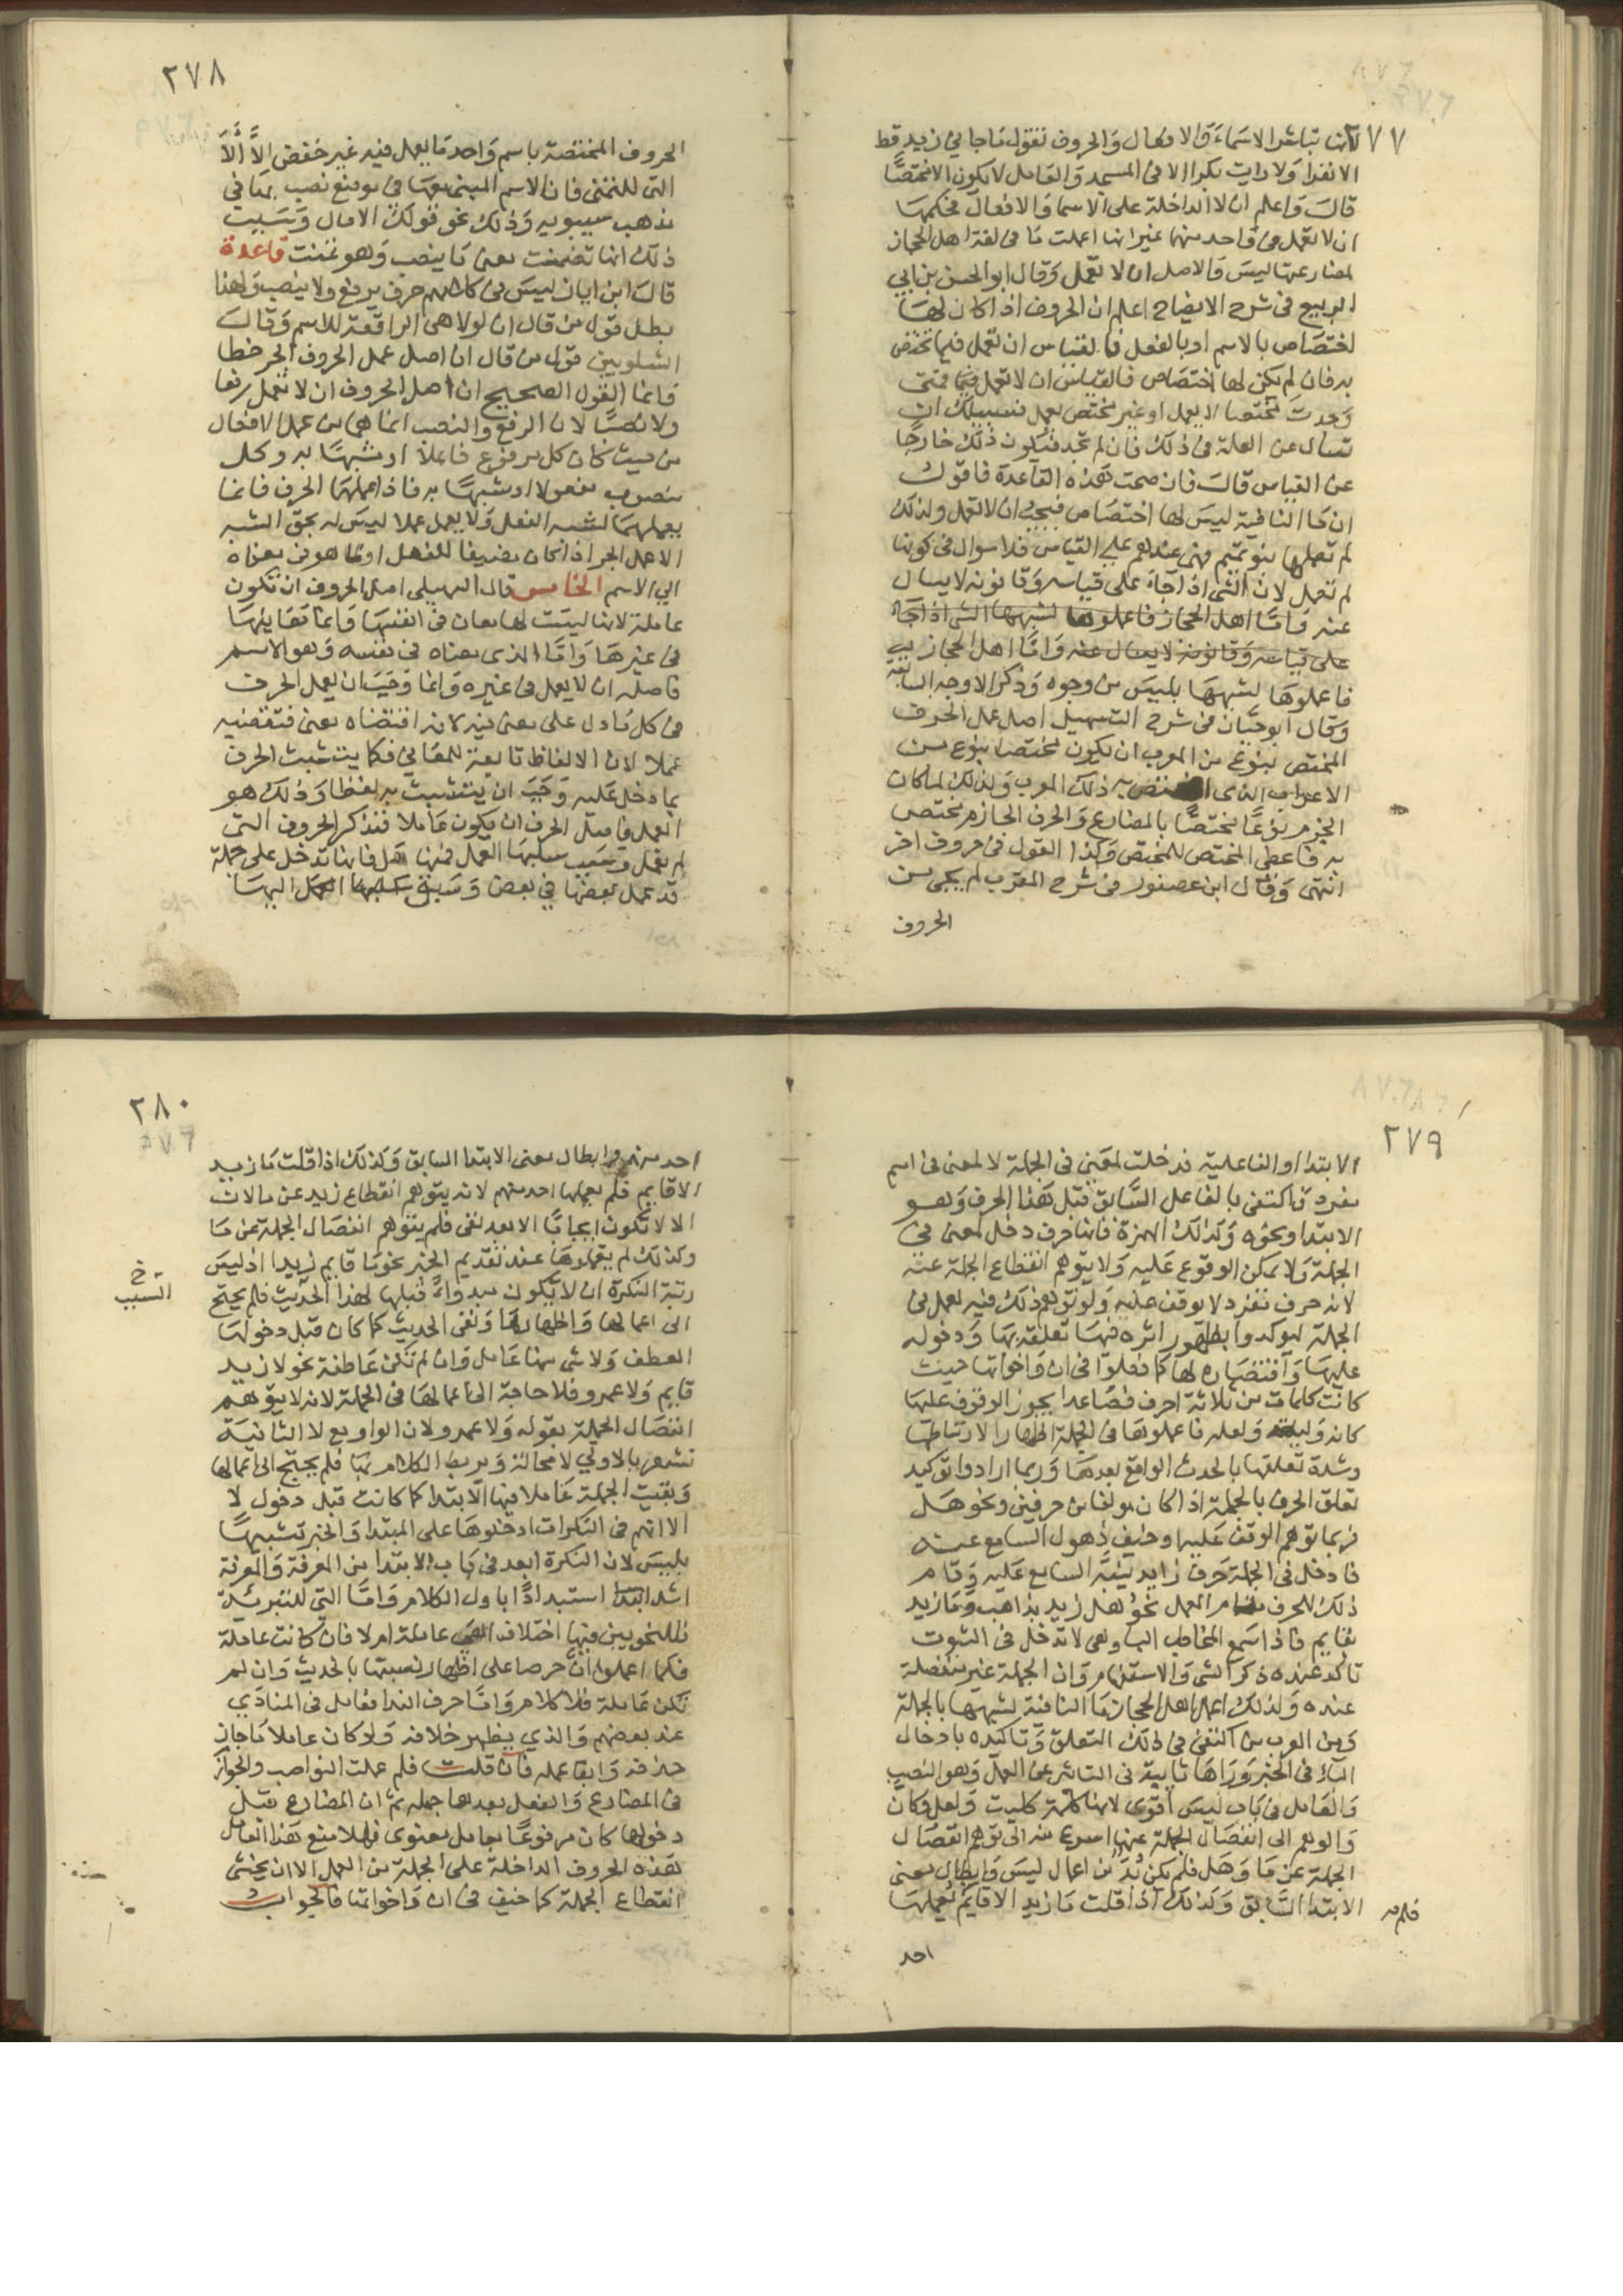 ٢٧٧
لانها تباشر الاسماء والافعال والحروف تقول ما جاني زيد قط
الا نقرا ولا رايت بكرا الا في المسجد والعامل لا يكون الا مختصًّا
قال واعلم ان لا الداخلة على الاسما والافعال فحكمها
ان لا تعمل في واحد منهما غير انها اعملت ما في لغة اهل الحجاز
لمضارعتها ليس والاصل ان لا تعمل وقال ابو الحسن بن ابي
الربيع في شرح الايضاح اعلم ان الحروف اذا كان لها
اختصاص بالاسم او بالفعل فالقياس ان تعمل فيما تختص
به فان لم يكن لها اختصاص فالقياس ان لا تعمل فيها فمتى
وجدت مختصا لا يعمل او غير مختص يعمل فسبيلك ان
تسال عن العلة في ذلك فان لم تجد فيكون ذلك خارجًا
عن القياس قال فان صحت هذه القاعدة فاقول
ان ما النافية ليس لها اختصاص فيجب ان لا تعمل ولذلك
لم تعملها بنو تميم فهي عندهم على القياس فلا سوال في كونها
لم تعمل لان الشي اذا جاء على قياسه وقانونه لا يسال
عنه واما اهل الحجاز فاعملوها لشبهها الشي اذا جاء
على قياسه وقانونه لا يسال عنه واما اهل الحجاز
فاعملوها لشبهها بليس من وجوه وذكر الاوجه السابقة
وقال ابو حيان في شرح التسهيل اصل عمل الحرف
المختص بنوع من المعرب ان يكون مختصا بنوع من
الاعراب الذي اختص به ذلك المعرب ولذلك لما كان
الجزم نوعًا مختصًّا بالمضارع والحرف الجازم مختص
به فاعطى المختص للمختص وكذا القول في حروف اخر
انتهى وقال ابن عصفور في شرح المقرب لم يجى من
الحروف
٢٧٨
الحروف المختصة باسم واحد ما يعمل فيه غير خفض الا الا
التي للتمني فان الاسم المبني معها في موضع نصب بها في
مذهب سيبويه وذلك نحو قولك الا مال وسبب
ذلك انها تضمنت معنى ما ينصب وهو تمنت قاعدة
قال ابن اياز ليس في كلامهم حرف يرفع ولا ينصب ولهذا
بطل قول من قال ان لولا هي الرافعة للاسم وقال
الشلوبين قول من قال ان اصل عمل الحروف الجر خطا
وانما القول الصحيح ان اصل الحروف ان لا تعمل رفعا
ولا نصبًا لان الرفع والنصب انما هي من عمل الافعال
من حيث كان كل مرفوع فاعلا او مشبهًا به وكل
منصوب مفعولا او مشبهًا به فاذا عملهما الحرف فانما
يعملهما لشبه الفعل ولا يعمل عملا ليس له بحق الشبه
الا عمل الجر اذا كان مضيفا للفعل او لما هو في معناه
الى الاسم الخامس قال السهيلي اصل الحروف ان تكون
عاملة لانها ليست لها معان في انفسها وانما معانيها
في غيرها واما الذي معناه في نفسه وهو الاسم
فاصله ان لا يعمل في غيره وانما وجب ان يعمل الحرف
في كل ما دل على معنى فيه لانه اقتضاه معنى فتقتضيه
عملا لان الالفاظ تابعة للمعاني فكما يتشبث الحرف
بما دخل عليه وجب ان يتشبث به لفظا وذلك هو
العمل فاصل الحرف ان يكون عاملا فنذكر الحروف التي
لم تعمل وسبب سلبها العمل فمنها هل فانها تدخل على جملة
قد عمل بعضها في بعض وسبق اليها
٢٧٩
الابتدا او الفاعلية فدخلت لمعنى في الجملة لا لمعنى في اسم
مفرد فاكتفى بالفاعل السابق قبل هذا الحرف وهو
الابتدا ونحوه وكذلك الهمزة فانها حرف دخل لمعنى في
الجملة ولا يمكن الوقوع عليه ولا يتوهم انقطاع الجملة عنه
لانه حرف مفرد لا يوقف عليه ولو توهم ذلك فيه لعمل في
الجملة ليوكدوا بظهور اثره فيها تعلقه بها ودخوله
عليها واقتضاه لها كما فعلوا في ان واخواتها حيث
كانت كلمات من ثلاثة احرف فصاعدا يجوز الوقوف عليها
كانه وليته ولعله فاعملوها في الجملة اظهارا لارتباطها
وشدة تعلقها بالحدث الواقع بعدها وربما ارادوا توكيد
تعلق الحرف بالجملة اذا كان مولفا من حرفين ونحو هل
فربما توهم الوقف عليه او خيف ذهول السامع عنه
فادخل في الجملة حرف زايد ينبه السامع عليه وقام
ذلك الحرف مقام العمل نحو هل زيد بذاهب وما زيد
بقايم فاذا سمع المخاطب الباء وهي لا تدخل في الثبوت
تاكد عنده ذكر النفي والاستفهام وان الجملة غير منفصلة
عنده ولذلك اعمل اهل الحجاز ما النافية لشبهها بالجملة
ومن العرب من اكتفى في ذلك التعلق وتاكيده بادخال
الباء في الخبر ورآها نايبة في التاثير عن العمل وهو النصب
والعامل في باب ليس اقوى لانها كلمة كليت ولعل وكان
والوهم الى انفصال الجملة عنها اسرع منه الى توهم انفصال
الجملة عن ما وهل فلم يكن بُدّ من اعمال ليس وابطال معنى
الابتدا السابق وكذلك اذا قلت ما زيد الا قايم يعملها
فلم
احد
٢٨٠
احد منهم وابطال معنى الابتدا السابق وكذلك اذا قلت ما زيد
الا قايم فلم يعملها احد منهم لانه يتوهم انقطاع زيد عن ما لان
الا لا تكون ايجابًا الا بعد نفي فلم يتوهم انفصال الجملة عن ما
وكذلك لم يعملوها عند تقديم الخبر نحو ما قايم زيد اذ ليس
رتبة النكرة ان لا تكون مبدوا بها قبلها لهذا الحديث فلم يحتج
خ
السبب
الى اعمالها واظهارها وبقي الحديث كما كان قبل دخولها
العطف ولا شي منها عامل وان لم تكن عاطفة نحو لا زيد
قايم ولا عمرو فلا حاجة الى اعمالها في الجملة لانه لا يتوهم
انفصال الجملة بقوله ولا عمرو لان الواو مع لا الثانية
تشعر بالاولى لا محالة وتربط الكلام بها فلم يحتج الى اعمالها
وبقيت الجملة عاملا فيها الابتدا كما كانت قبل دخول لا
الا انهم في النكرات ادخلوها على المبتدا والخبر تشبيهًا
بليس لان النكرة ابعد في باب الابتدا من المعرفة والمعرفة
اشد استبدادًا باول الكلام واما التي للتبرئة
فللنحويين فيها اختلاف اهي عاملة ام لا فان كانت عاملة
فكما اعملوا ان حرصا على اظهار نسبتها بالحديث وان لم
تكن عاملة فلا كلام واما حرف الندا فعامل في المنادى
عند بعضهم والذي يظهر خلافه ولو كان عاملا ما جاز
حذفه وابقا عمله فان قلت فلم عملت النواصب والجوازم
في المضارع والفعل بعدها جملة ثم ان المضارع قبل
دخولها كان مرفوعًا بعامل معنوى فهلا منع هذا العامل
هذه الحروف الداخلة على الجملة من العمل الا ان يخشى
انقطاع الجملة كما خيف في ان واخواتها فالجواب